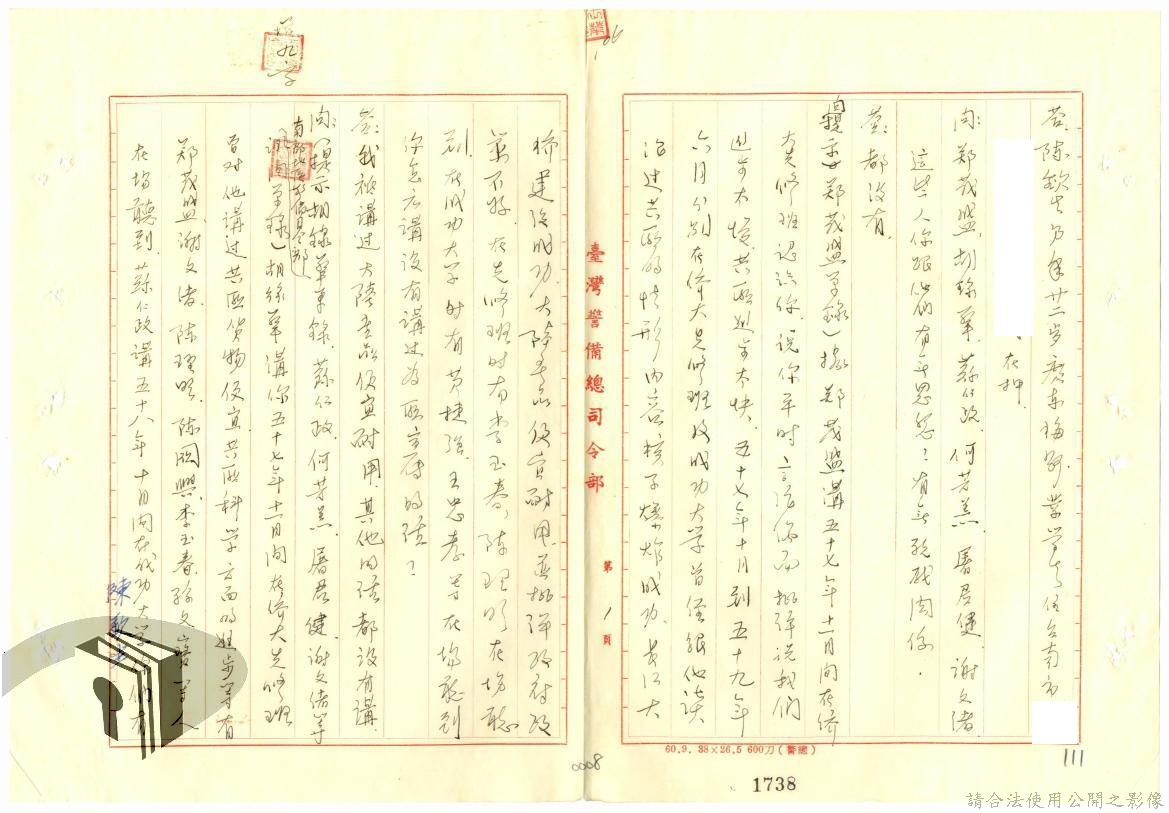 答：陳欽生男年廿二歲廣東梅縣業學生住台南市
在押
問：鄭茂盛、胡錦華、蘇仁政、何芳美、屠君健、謝文緒
這些人你跟他們有無恩怨？有無親戚関係．
答：都没有．
問：鄭茂盛筆錄）據鄭茂盛講五十七年十一月間在僑
大先修班認識你，說你平時言論偏而批評說我們
進步太慢，共匪進步太快，五十七年十月到五十九年
六月分別在僑大先修班及成功大学曾経跟他談
論过共匪的情形內容核子爆炸成功，長江大
橋建設成功，大陸產品便宜耐用並批評政府政
策不好，在先修班時有李玉春，陳理明在場聽
到，在成功大学時有黄捷強，王忠孝等在場聽到
你怎么講没有講过為匪宣傳的話？
答：我祇講过大陸產品便宜耐用其他的話都没有講
問：（提示胡錦華筆錄，蘇仁政，何芳美，屠君健，謝文緒等
南部地區警備司令部
筆錄）胡錦華講你五十七年十一月間在僑大先修班
曾对他講过共匪貨物便宜共匪科学方面的進步等有
鄭茂盛，謝文緒，陳理明，陳興，李玉春，孫文等人
在場聽到，蘇仁政講五十八年十月間在成功大学他們有
臺灣警備總司令部
第1頁
60.9．38×26.5 600刀（警總）
111
0008
1738
106
陳欽生
請合法使用公開之影像